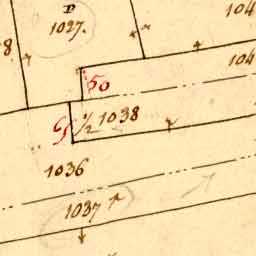 104
1027.
8.
104
50
½ 1038
1036
1037